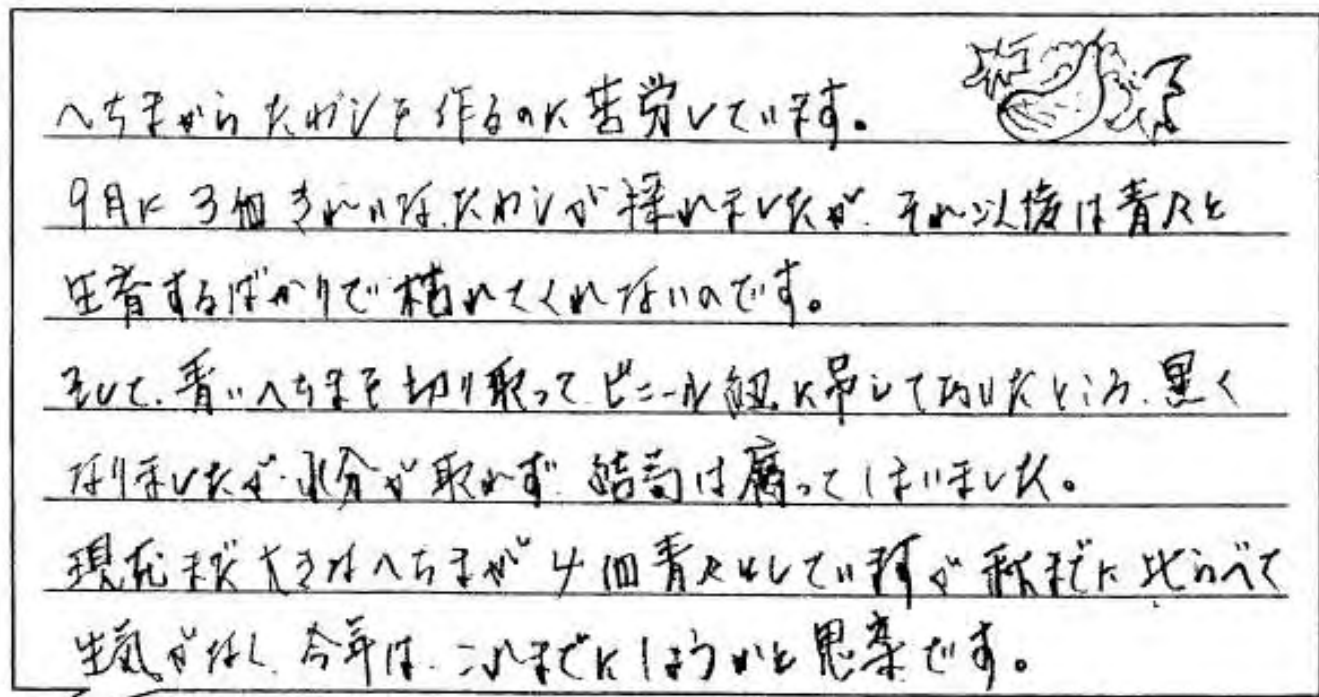 へちまからたわしを作るのに苦労しています。
9月に3個きれいな、たわしが採れましたが、それ以後は青々と
生育するばかりで枯れてくれないのです。
そして、青いへちまを切り取って、ビニール紐に吊しておいたところ、黒く
なりましたが、水分が取れず、結局は腐ってしまいました。
現在まだ大きなへちまが4個青々としていますが秋までに比らべて
生気がなく、今年は、これまでにしようかと思案です。